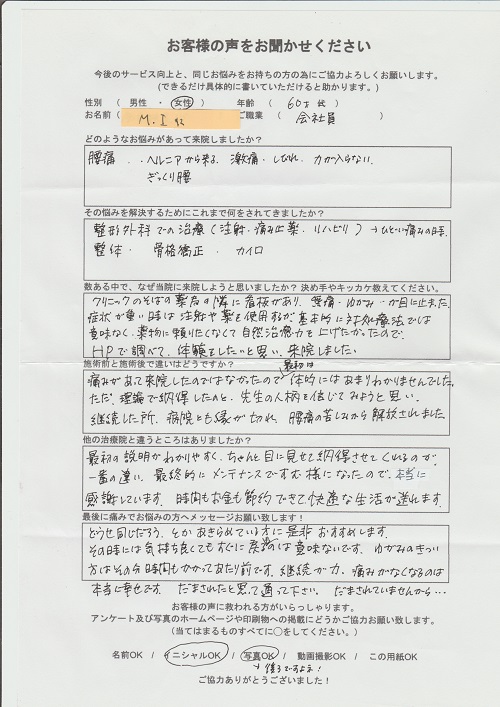 お客様の声をお聞かせください
今後のサービス向上と、同じお悩みをお持ちの方の為にご協力よろしくお願いします。
(できるだけ具体的に書いていただけると助かります。)
性別 ( 男性 ・ 女性 ) 年齢 ( 60才代 )
お名前 ( M.I 様 ) ご職業 ( 会社員 )
どのようなお悩みがあって来院しましたか?
腰痛 、、ヘルニアから来る 激痛・しびれ、力が入らない、
ぎっくり腰
その悩みを解決するためにこれまで何をされてきましたか?
整形外科での治療(注射・痛み止薬・リハビリ)→ひどい痛みの時、
整体・骨格矯正・カイロ
数ある中で、なぜ当院に来院しようと思いましたか? 決め手やキッカケ教えてください。
クリニックのそばの薬局の隣に看板があり、腰痛・ゆがみ…が目に止まった。
症状が重い時は注射や薬を使用するが、基本的に対処療法では
意味なく、薬物に頼りたくなくて自然治癒力を上げたかったので、
HPで調べて、体験をしたいと思い、来院しました。
施術前と施術後で違いはどうですか?
痛みがあって来院したのではなかったので最初は体的にはあまりわかりませんでした。
ただ、理論で納得したのと、先生の人柄を信じてみようと思い、
継続した所、病院とも縁が切れ、腰痛の苦しみから解放されました。
他の治療院と違うところはありましたか?
最初の説明がわかりやすく、ちゃんと目に見せて納得させてくれるのが、
一番の違い。最終的にメンテナンスですむ様になったので、本当に
感謝しています。時間もお金も節約できて快適な生活が送れます。
最後に痛みでお悩みの方へメッセージお願い致します!
どうせ同じだろう、とかあきらめている方に是非おすすめします。
その時には気持ち良くてもすぐに戻るのは意味ないです。ゆがみのきつい
方はその分時間もかかってあたり前です。継続が力、痛みがなくなるのは
本当に幸せです。だまされたと思って通って下さい。だまされていませんから…
お客様の声に救われる方がいらっしゃります。
アンケート及び写真のホームページや印刷物への掲載にどうかご協力お願い致します。
(当てはまるものすべてに○をしてください。)
名前OK / イニシャルOK / 写真OK / 動画撮影OK / この用紙OK
ご協力ありがとうございました!